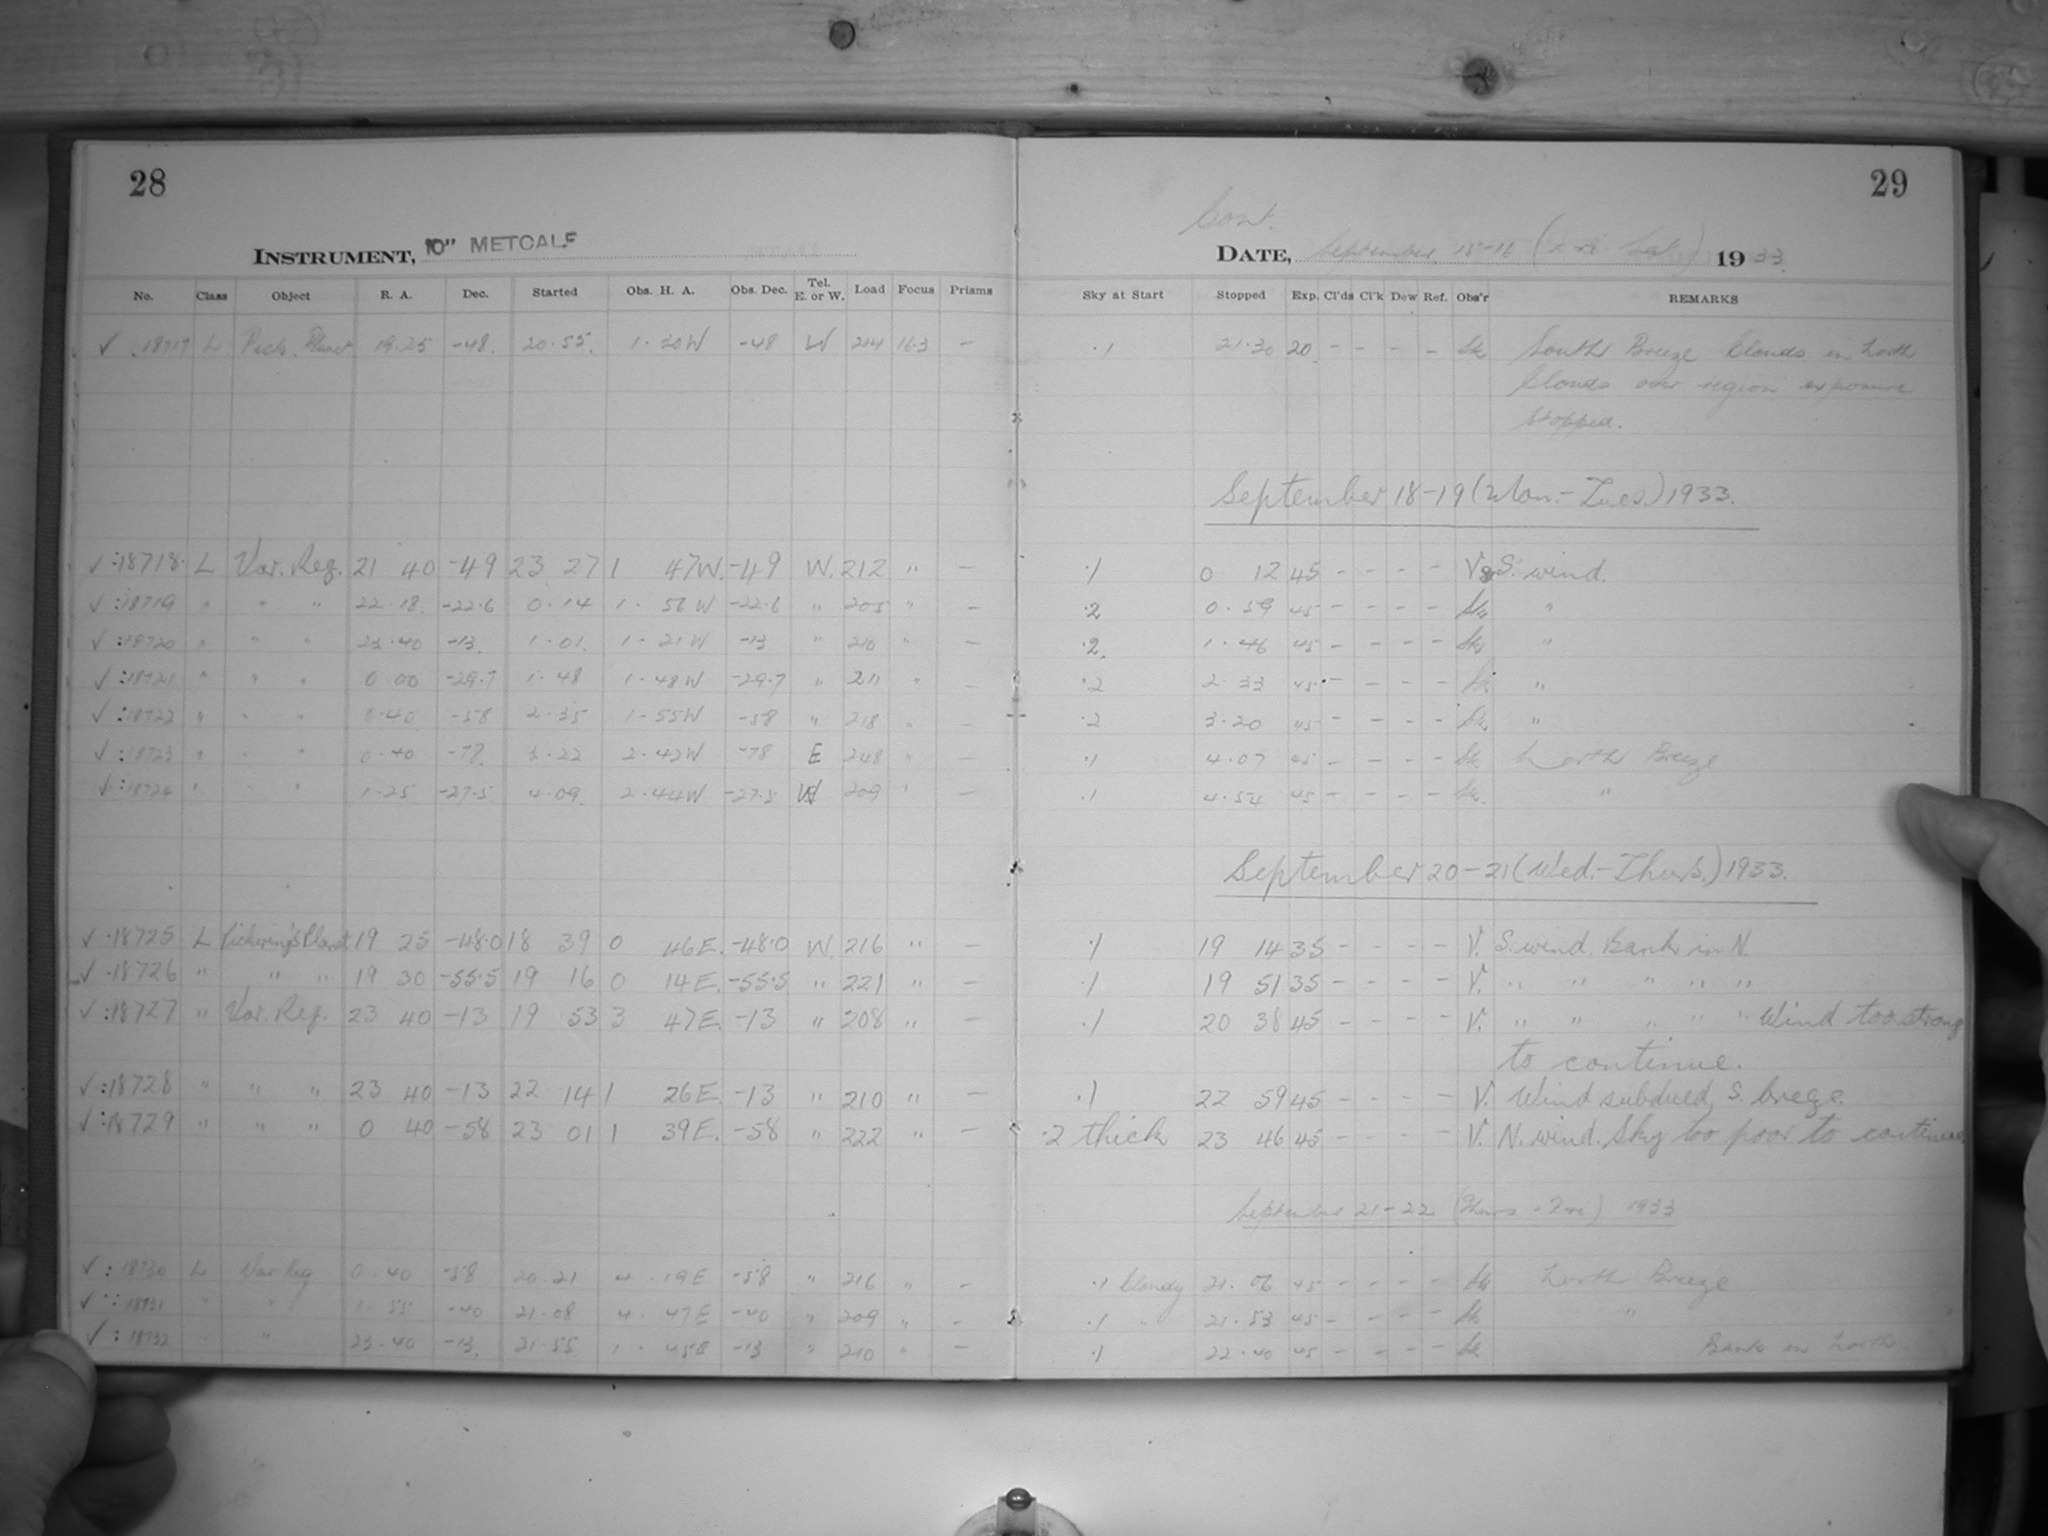 28
29
Cont.
INSTRUMENT, 10" METCALF
DATE, September 15-16 (Fri-Sat.) 1933
No. Class Object R. A. Dec. Started Obs. H. A. Obs. Dec. Tel. E. or W. Load Focus Prisms Sky at Start Stopped Exp. Cl'ds Cl'k Dew Ref. Obs'r REMARKS
√ 18717 L Pick. Planet 19.25 -48. 20.55. 1.30W -48 W 214 16.3 — .1 21.30 20 - - - - Sk South Breeze Clouds in North
Clouds over region exposure
stopped.
September 18-19 (Mon.-Tues.) 1933.
√ :18718 L Var. Reg. 21 40 -49 23 27 1 47W. -49 W. 212 " — .1 0 12 45 - - - - V. S. wind.
√ :18719 " " " 22.18. -22.6 0.14 1.56W -22.6 " 205 " — .2 0.59 45 - - - - Sk "
√ :18720 " " " 23.40 -13. 1.01. 1.21W -13 " 210 " — .2. 1.46 45 - - - - Sk "
√ :18721 " " " 0 00 -29.7 1.48 1.48W -29.7 " 211 " — .2 2.33 45 - - - - Sk "
√ :18722 " " " 0.40 -58 2.35 1.55W -58 " 218 " — .2 3.20 45 - - - - Sk "
√ :18723 " " " 0.40 -78. 3.22 2.42W -78 E 248 " — .1 4.07 45 - - - - Sk North Breeze
√ :18724 " " " 1.25 -27.5 4.09. 2.44W -27.5 W 209 " — .1 4.54 45 - - - - Sk. "
September 20-21 (Wed.-Thurs.) 1933.
√ .18725 L Pickering's Planet 19 25 -48.0 18 39 0 46E. -48.0 W. 216 " — .1 19 14 35 - - - - V. S. wind. Bank in N.
√ .18726 " " " 19 30 -55.5 19 16 0 14E. -55.5 " 221 " — .1 19 51 35 - - - - V. " " " " "
√ :18727 " Var. Reg. 23 40 -13 19 53 3 47E. -13 " 208 " — .1 20 38 45 - - - - V. " " " " " Wind too strong
to continue.
√ :18728 " " " 23 40 -13 22 14 1 26E. -13 " 210 " — .1 22 59 45 - - - - V. Wind subdued, S. breeze.
√ :18729 " " " 0 40 -58 23 01 1 39E. -58 " 222 " — .2 thick 23 46 45 - - - - V. N. wind. Sky too poor to continue
September 21-22 (Thurs-Fri) 1933
√ :18730 L Var Reg 0.40 -58 20.21 4.19E -58 " 216 " - .1 Cloudy 21.06 45 - - - - Sk North Breeze
√ :18731 " " 1.55 -40 21.08 4.47E -40 " 209 " - .1 " 21.53 45 - - - - Sk "
√ :18732 " " 23.40 -13. 21.55 1.45E -13 " 210 " — .1 22.40 45 - - - - Sk Bank in North